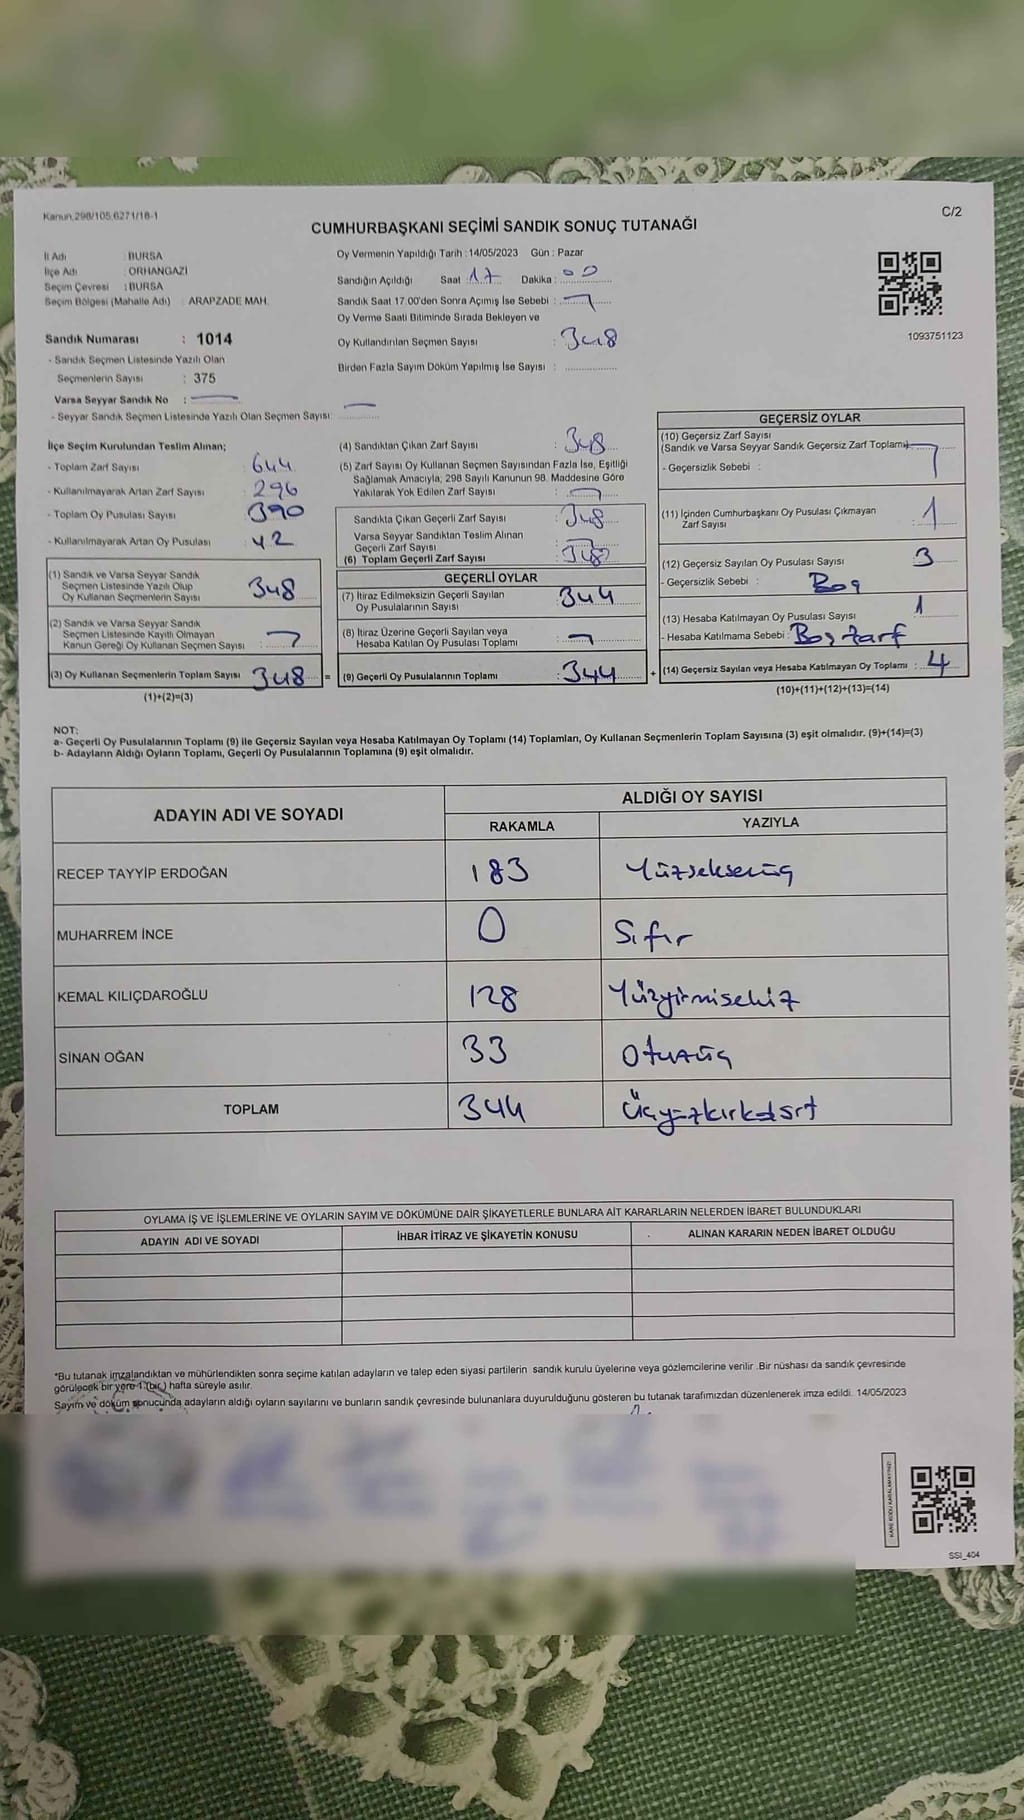 Kanun,298/105,6271/18-1
C/2
CUMHURBAŞKANI SEÇİMİ SANDIK SONUÇ TUTANAĞI
İl Adı : BURSA
İlçe Adı : ORHANGAZİ
Seçim Çevresi : BURSA
Seçim Bölgesi (Mahalle Adı) : ARAPZADE MAH.
Sandık Numarası : 1014
- Sandık Seçmen Listesinde Yazılı Olan
Seçmenlerin Sayısı : 375
Varsa Seyyar Sandık No :
- Seyyar Sandık Seçmen Listesinde Yazılı Olan Seçmen Sayısı:
Oy Vermenin Yapıldığı Tarih :14/05/2023 Gün : Pazar
Sandığın Açıldığı Saat : 17 Dakika : 00
Sandık Saat 17.00'den Sonra Açımış İse Sebebi :
Oy Verme Saati Bitiminde Sırada Bekleyen ve
Oy Kullandırılan Seçmen Sayısı : 348
Birden Fazla Sayım Döküm Yapılmış İse Sayısı :
1093751123
İlçe Seçim Kurulundan Teslim Alınan;
- Toplam Zarf Sayısı : 644
- Kullanılmayarak Artan Zarf Sayısı : 296
- Toplam Oy Pusulası Sayısı : 390
- Kullanılmayarak Artan Oy Pusulası : 42
(1) Sandık ve Varsa Seyyar Sandık
Seçmen Listesinde Yazılı Olup
Oy Kullanan Seçmenlerin Sayısı : 348
(2) Sandık ve Varsa Seyyar Sandık
Seçmen Listesinde Kayıtlı Olmayan
Kanun Gereği Oy Kullanan Seçmen Sayısı :
(3) Oy Kullanan Seçmenlerin Toplam Sayısı : 348 =
(1)+(2)=(3)
(4) Sandıktan Çıkan Zarf Sayısı : 348
(5) Zarf Sayısı Oy Kullanan Seçmen Sayısından Fazla İse, Eşitliği
Sağlamak Amacıyla; 298 Sayılı Kanunun 98. Maddesine Göre
Yakılarak Yok Edilen Zarf Sayısı :
Sandıkta Çıkan Geçerli Zarf Sayısı : 348
Varsa Seyyar Sandıktan Teslim Alınan
Geçerli Zarf Sayısı :
(6) Toplam Geçerli Zarf Sayısı : 348
GEÇERLİ OYLAR
(7) İtiraz Edilmeksizin Geçerli Sayılan
Oy Pusulalarının Sayısı : 344
(8) İtiraz Üzerine Geçerli Sayılan veya
Hesaba Katılan Oy Pusulası Toplamı :
(9) Geçerli Oy Pusulalarının Toplamı : 344 +
GEÇERSİZ OYLAR
(10) Geçersiz Zarf Sayısı
(Sandık ve Varsa Seyyar Sandık Geçersiz Zarf Toplamı) :
- Geçersizlik Sebebi :
(11) İçinden Cumhurbaşkanı Oy Pusulası Çıkmayan
Zarf Sayısı : 1
(12) Geçersiz Sayılan Oy Pusulası Sayısı : 3
- Geçersizlik Sebebi : Boş
(13) Hesaba Katılmayan Oy Pusulası Sayısı : 1
- Hesaba Katılmama Sebebi : Boş zarf
(14) Geçersiz Sayılan veya Hesaba Katılmayan Oy Toplamı : 4
(10)+(11)+(12)+(13)=(14)
NOT:
a- Geçerli Oy Pusulalarının Toplamı (9) ile Geçersiz Sayılan veya Hesaba Katılmayan Oy Toplamı (14) Toplamları, Oy Kullanan Seçmenlerin Toplam Sayısına (3) eşit olmalıdır. (9)+(14)=(3)
b- Adayların Aldığı Oyların Toplamı, Geçerli Oy Pusulalarının Toplamına (9) eşit olmalıdır.
ADAYIN ADI VE SOYADI
ALDIĞI OY SAYISI
RAKAMLA YAZIYLA
RECEP TAYYİP ERDOĞAN 183 Yüzseksenüç
MUHARREM İNCE 0 Sıfır
KEMAL KILIÇDAROĞLU 128 Yüzyirmisekiz
SİNAN OĞAN 33 Otuzüç
TOPLAM 344 Üçyüzkırkdört
OYLAMA İŞ VE İŞLEMLERİNE VE OYLARIN SAYIM VE DÖKÜMÜNE DAİR ŞİKAYETLERLE BUNLARA AİT KARARLARIN NELERDEN İBARET BULUNDUKLARI
ADAYIN ADI VE SOYADI İHBAR İTİRAZ VE ŞİKAYETİN KONUSU ALINAN KARARIN NEDEN İBARET OLDUĞU
*Bu tutanak imzalandıktan ve mühürlendikten sonra seçime katılan adayların ve talep eden siyasi partilerin sandık kurulu üyelerine veya gözlemcilerine verilir .Bir nüshası da sandık çevresinde
görülecek bir yere 1 (bir) hafta süreyle asılır.
Sayım ve döküm sonucunda adayların aldığı oyların sayılarını ve bunların sandık çevresinde bulunanlara duyurulduğunu gösteren bu tutanak tarafımızdan düzenlenerek imza edildi. 14/05/2023
KARE KODU KARALAMAYINIZ!
SSI_404